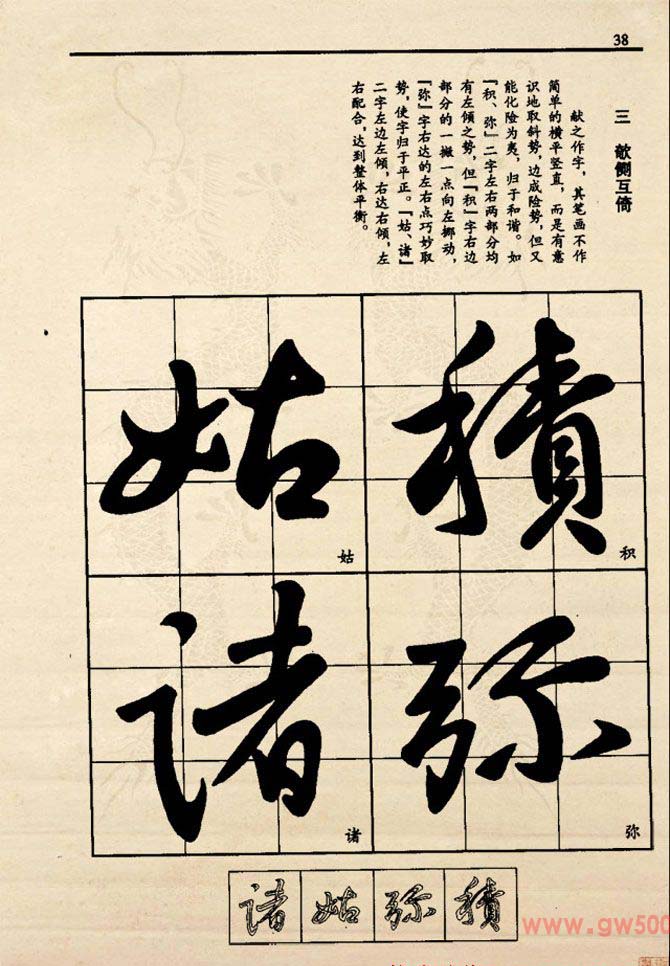 38
三 欹侧互倚
献之作字，其笔画不作
简单的横平竖直，而是有意
识地取斜势，边成险势，但又
能化险为夷，归于和谐。如
『积、弥』二字左右两部分均
有左倾之势，但『积』字右边
部分的一撇一点向左挪动，
『弥』字右达的左右点巧妙取
势，使字归于平正。『姑、诸』
二字左边左倾，右达右倾，左
右配合，达到整体平衡。
積
积
弥
弥
姑
姑
諸
诸
諸 姑 弥 積
www.gw500